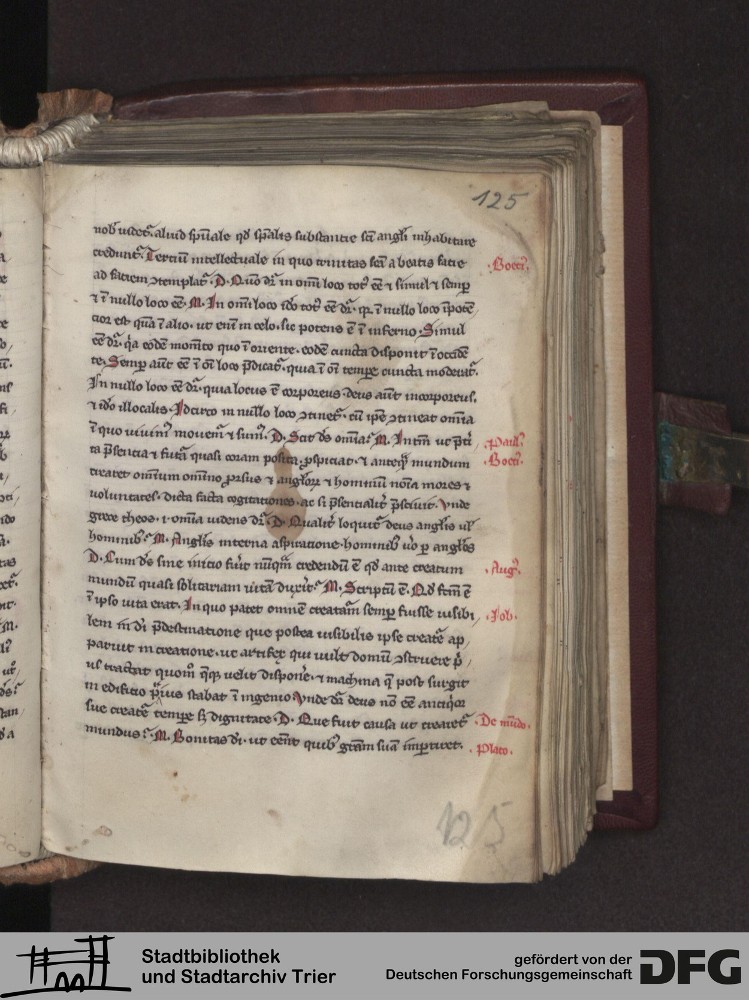 125
nob̄ uidet᷑. aliud sp̄uale qd̄ sp̄alis substantie sc̄i angl̓i inhabitare
credunt᷑. Terciū intellectuale in quo trinitas sc̄a a beatis facie
ad faciem ꝯtemplat᷑. D. Quō dr̄ in om̄i loco tot᷑ ēē ⁊ simul ⁊ semp̱
⁊ ī nullo loco ēē. M. In om̄i loco iđo tot᷑ ēē dr̄. qꝛ ī nullo loco īpotē
cior est qua ī alio. ut eni᷑ in celo. sic potens ē ī inferno. Simul
ēē dr̄. q̓a eodē mom̄to quo ī oriente. eodē cuncta disponit ī occidē
te. Semp̱ aut̄ ēē ī oī loco p̄dicat᷑. quia ī oī tempe cuncta moderat᷑.
In nullo loco ēē dr̄. quia locus ē corporeus deus aut̄ incorporeus.
⁊ iđo illocalis. Idcirco in nullo loco ꝯtinet᷑. cū ip̄e ꝯtineat om̄ia
ī quo uiuim᷑ mouem᷑ ⁊ sum᷑. D. Scit ds̄ om̄ia. M. In tm̄ ut p̄ti
ta p̄sencia ⁊ fut᷑a quasi coram posita ꝓspiciat. ⁊ anteqᷓ mundum
crearet omnium omnino ꝓrsus ⁊ anglōꝝ ⁊ hominū nōia mores ⁊
voluntates. dicta facta cogitationes. ac si p̄sencialit᷑ p̄sciuit. Vnde
grece theos. i. om̄ia uidens dr̄. D. Qualit᷑ loquit᷑ deus anglis ul̓
hominib᷑. M. Anglis interna aspiratione hominib᷑ u̓o ꝑ angl̓os
D. Cum ds̄ sine inicio fu̓it nūqm̄ credendū ē qd̄ ante creatum
mundū quasi solitariam uitā dux̓it. M. Scriptū ē. Qd̄ fc̄m ē
ī ipso uita erat. In quo patet omnē creatam̄ semp̱ fuisse uisibi
lem in dī p̄destinatione que postea uisibilis ipse creat̄e ap
paruit in creatione. ut artifex qui uult domū ꝯstruere p̓
us tractat quom̊ q̄qꝫ uelit dispon̓e. ⁊ machina q̄ post surgit
in edificio p̓us stabat ī ingenio. Vnde dr̄ deus nō ēē antiq̓or
sue creat̄e tempe sꝫ dignitate. D. Que fuit causa ut crearet᷑
mundus. M. Bonitas dī. ut eēnt quib᷑ gr̄am suā imp̱tiret.
Boeci᷑.
Paul᷑.
Boeci᷑.
Aug᷑.
Iob.
De mūdo.
Plato.
125
Stadtbibliothek
und Stadtarchiv Trier
gefördert von der
Deutschen Forschungsgemeinschaft
DFG